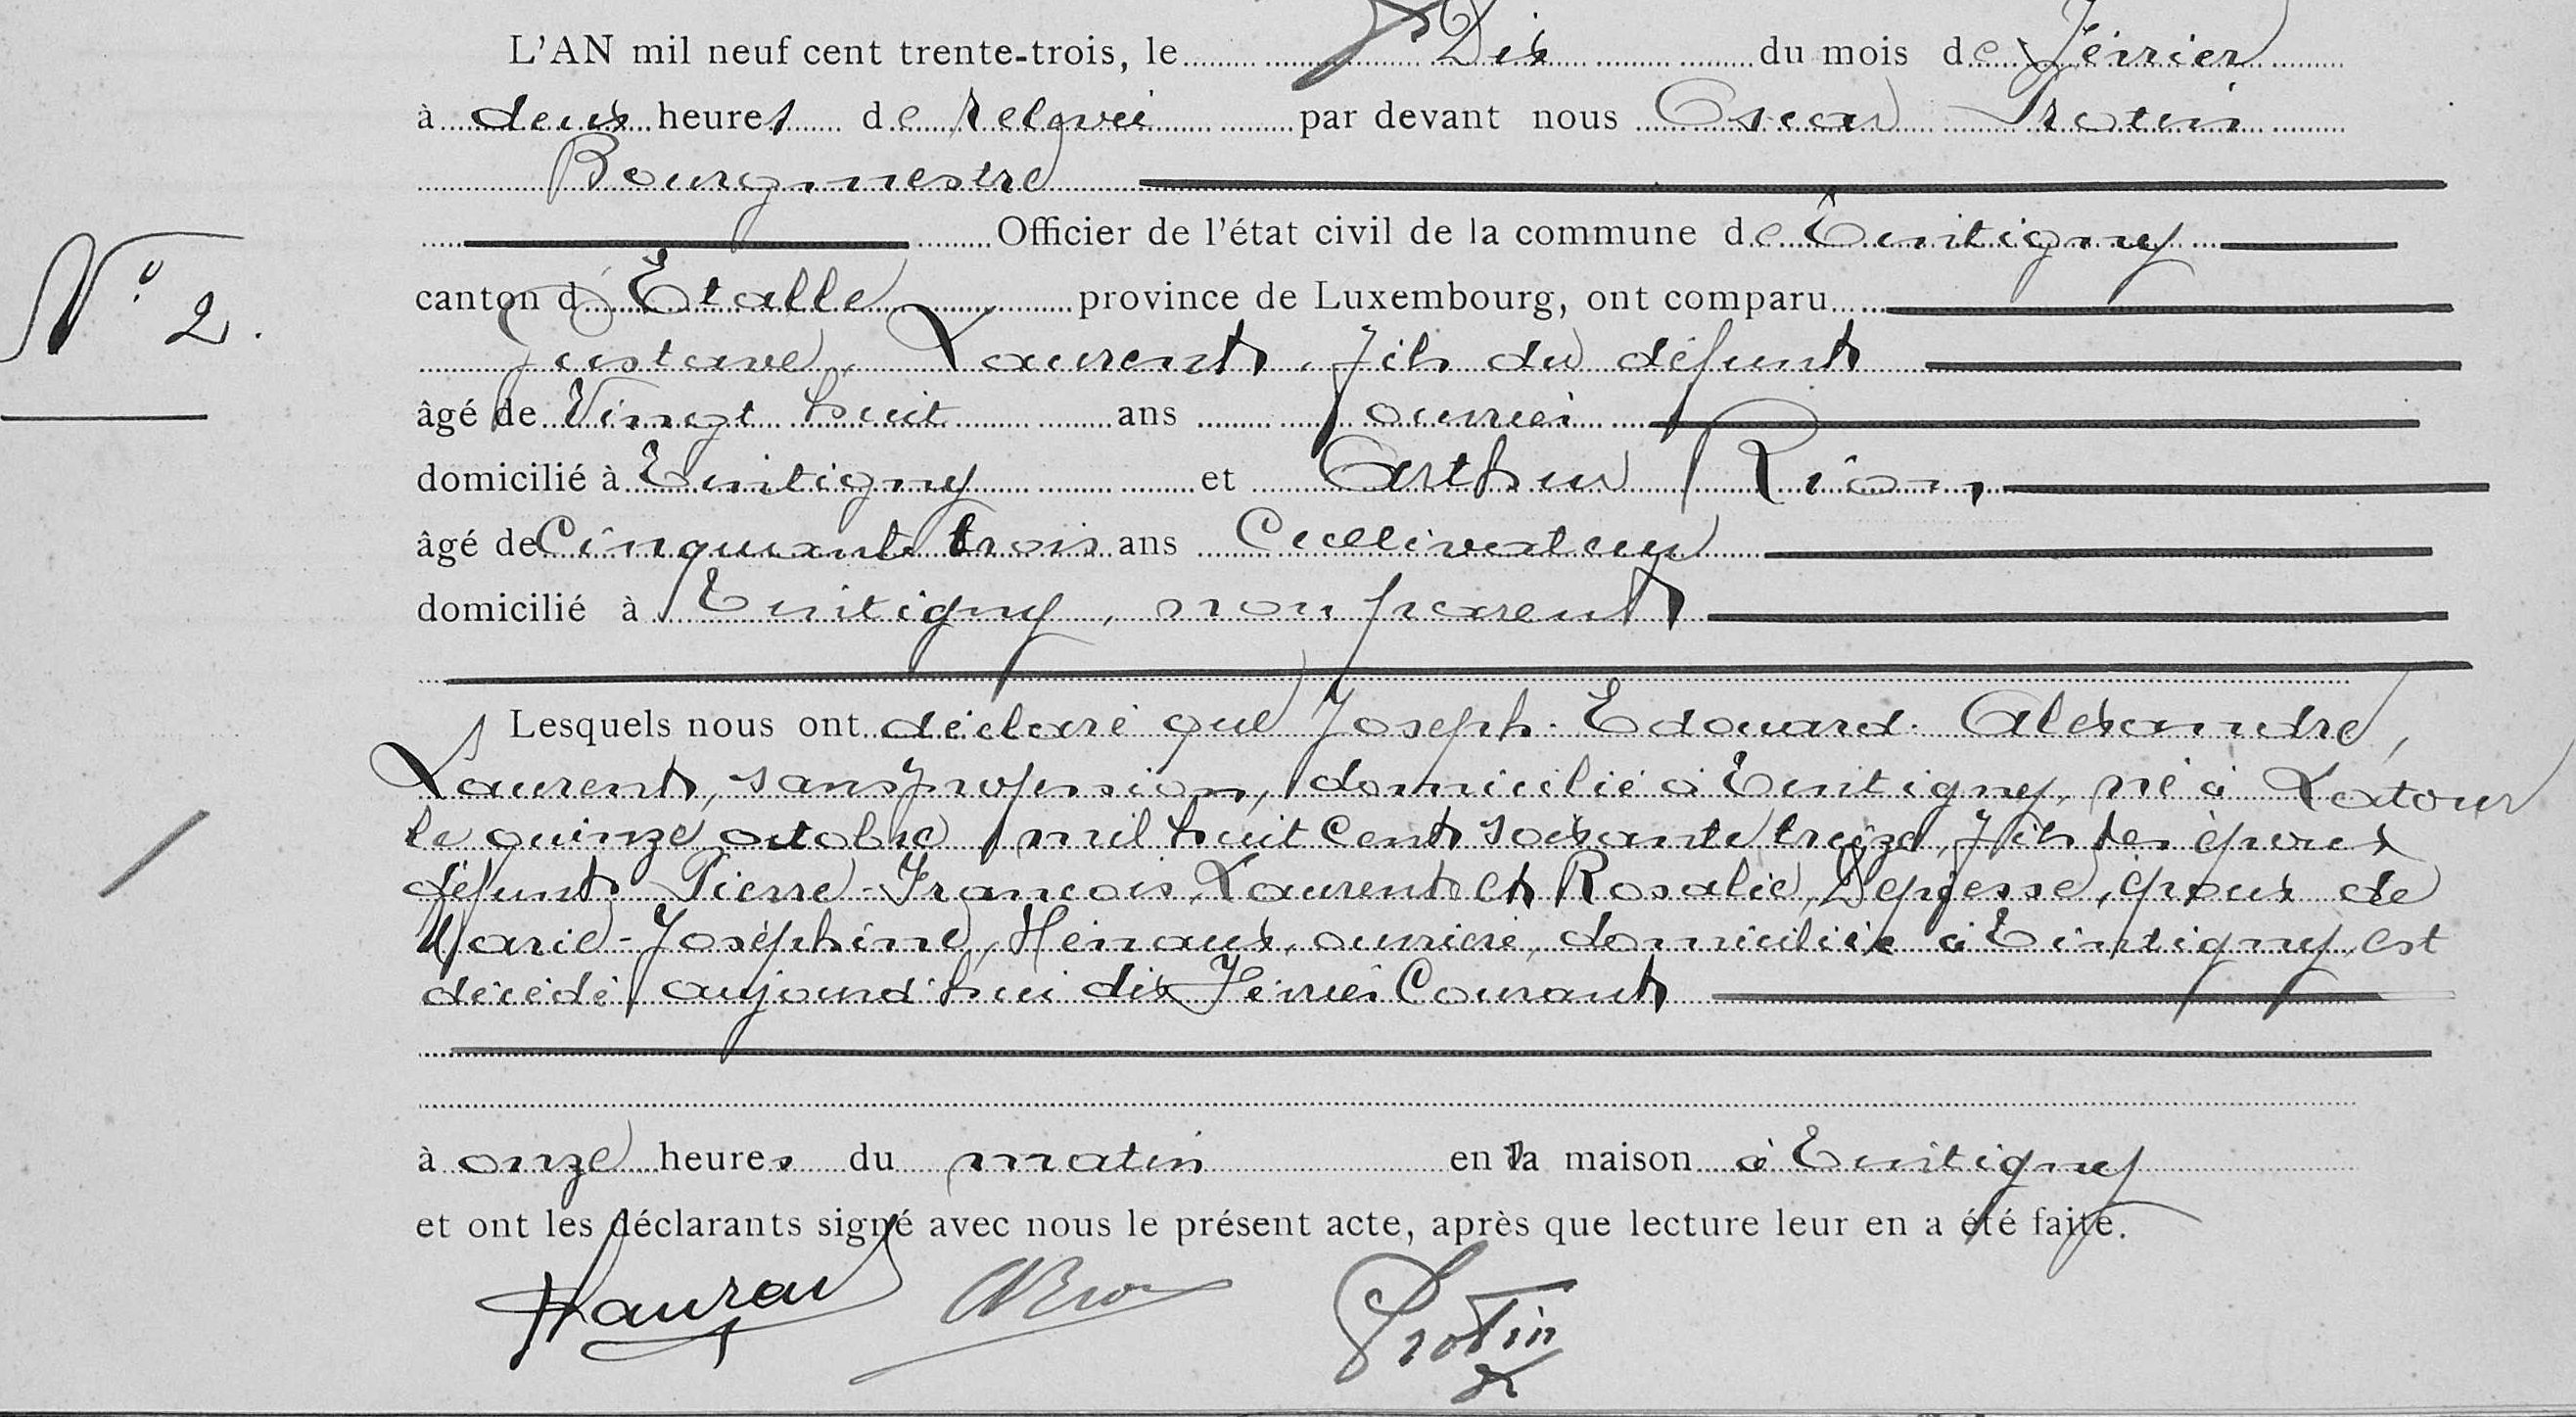 L'AN mil neuf cent trente-trois, le Dix du mois de Février
à deux heures de relevée par devant nous Oscar Protin
Bourgmestre
Officier de l'état civil de la commune de Tintigny
N° 2.
canton d'Etalle province de Luxembourg, ont comparu
Gustave, Laurent, fils du défunt
âgé de Vingt huit ans ouvrier
domicilié à Tintigny et Arthur Rion,
âgé de Cinquante trois ans Cultivateur
domicilié à Tintigny, non parent
Lesquels nous ont déclaré que Joseph-Edouard-Alexandre,
Laurent, sans profession, domicilié à Tintigny, né à Latour
le quinze octobre mil huit cent soixante treize, fils des époux
défunts Pierre-François, Laurent et Rosalie, époux de
Marie-Joséphine, Hénaux, ouvrière, domiciliée à Tintigny, est
décédé aujourd'hui dix Février Courant
à onze heures du matin en la maison à Tintigny
et ont les déclarants signé avec nous le présent acte, après que lecture leur en a été faite.
Laurent ARion Protin